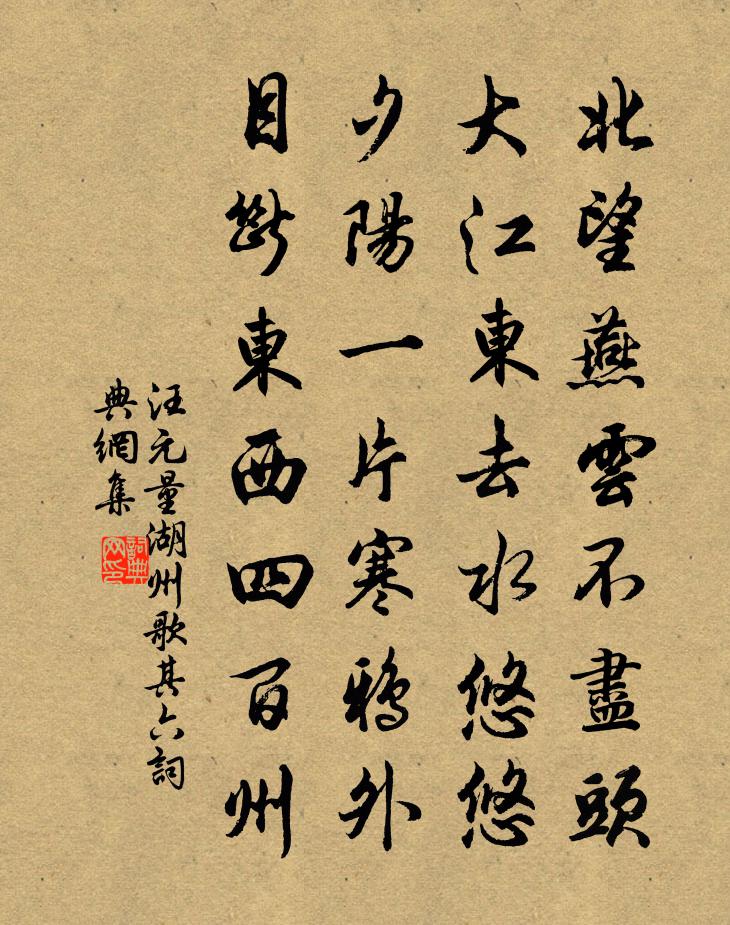 北望燕雲不盡頭
大江東去水悠悠
夕陽一片寒鴉外
目斷東西四百州
汪元量湖州歌其六詞
典網集
詞典
网印